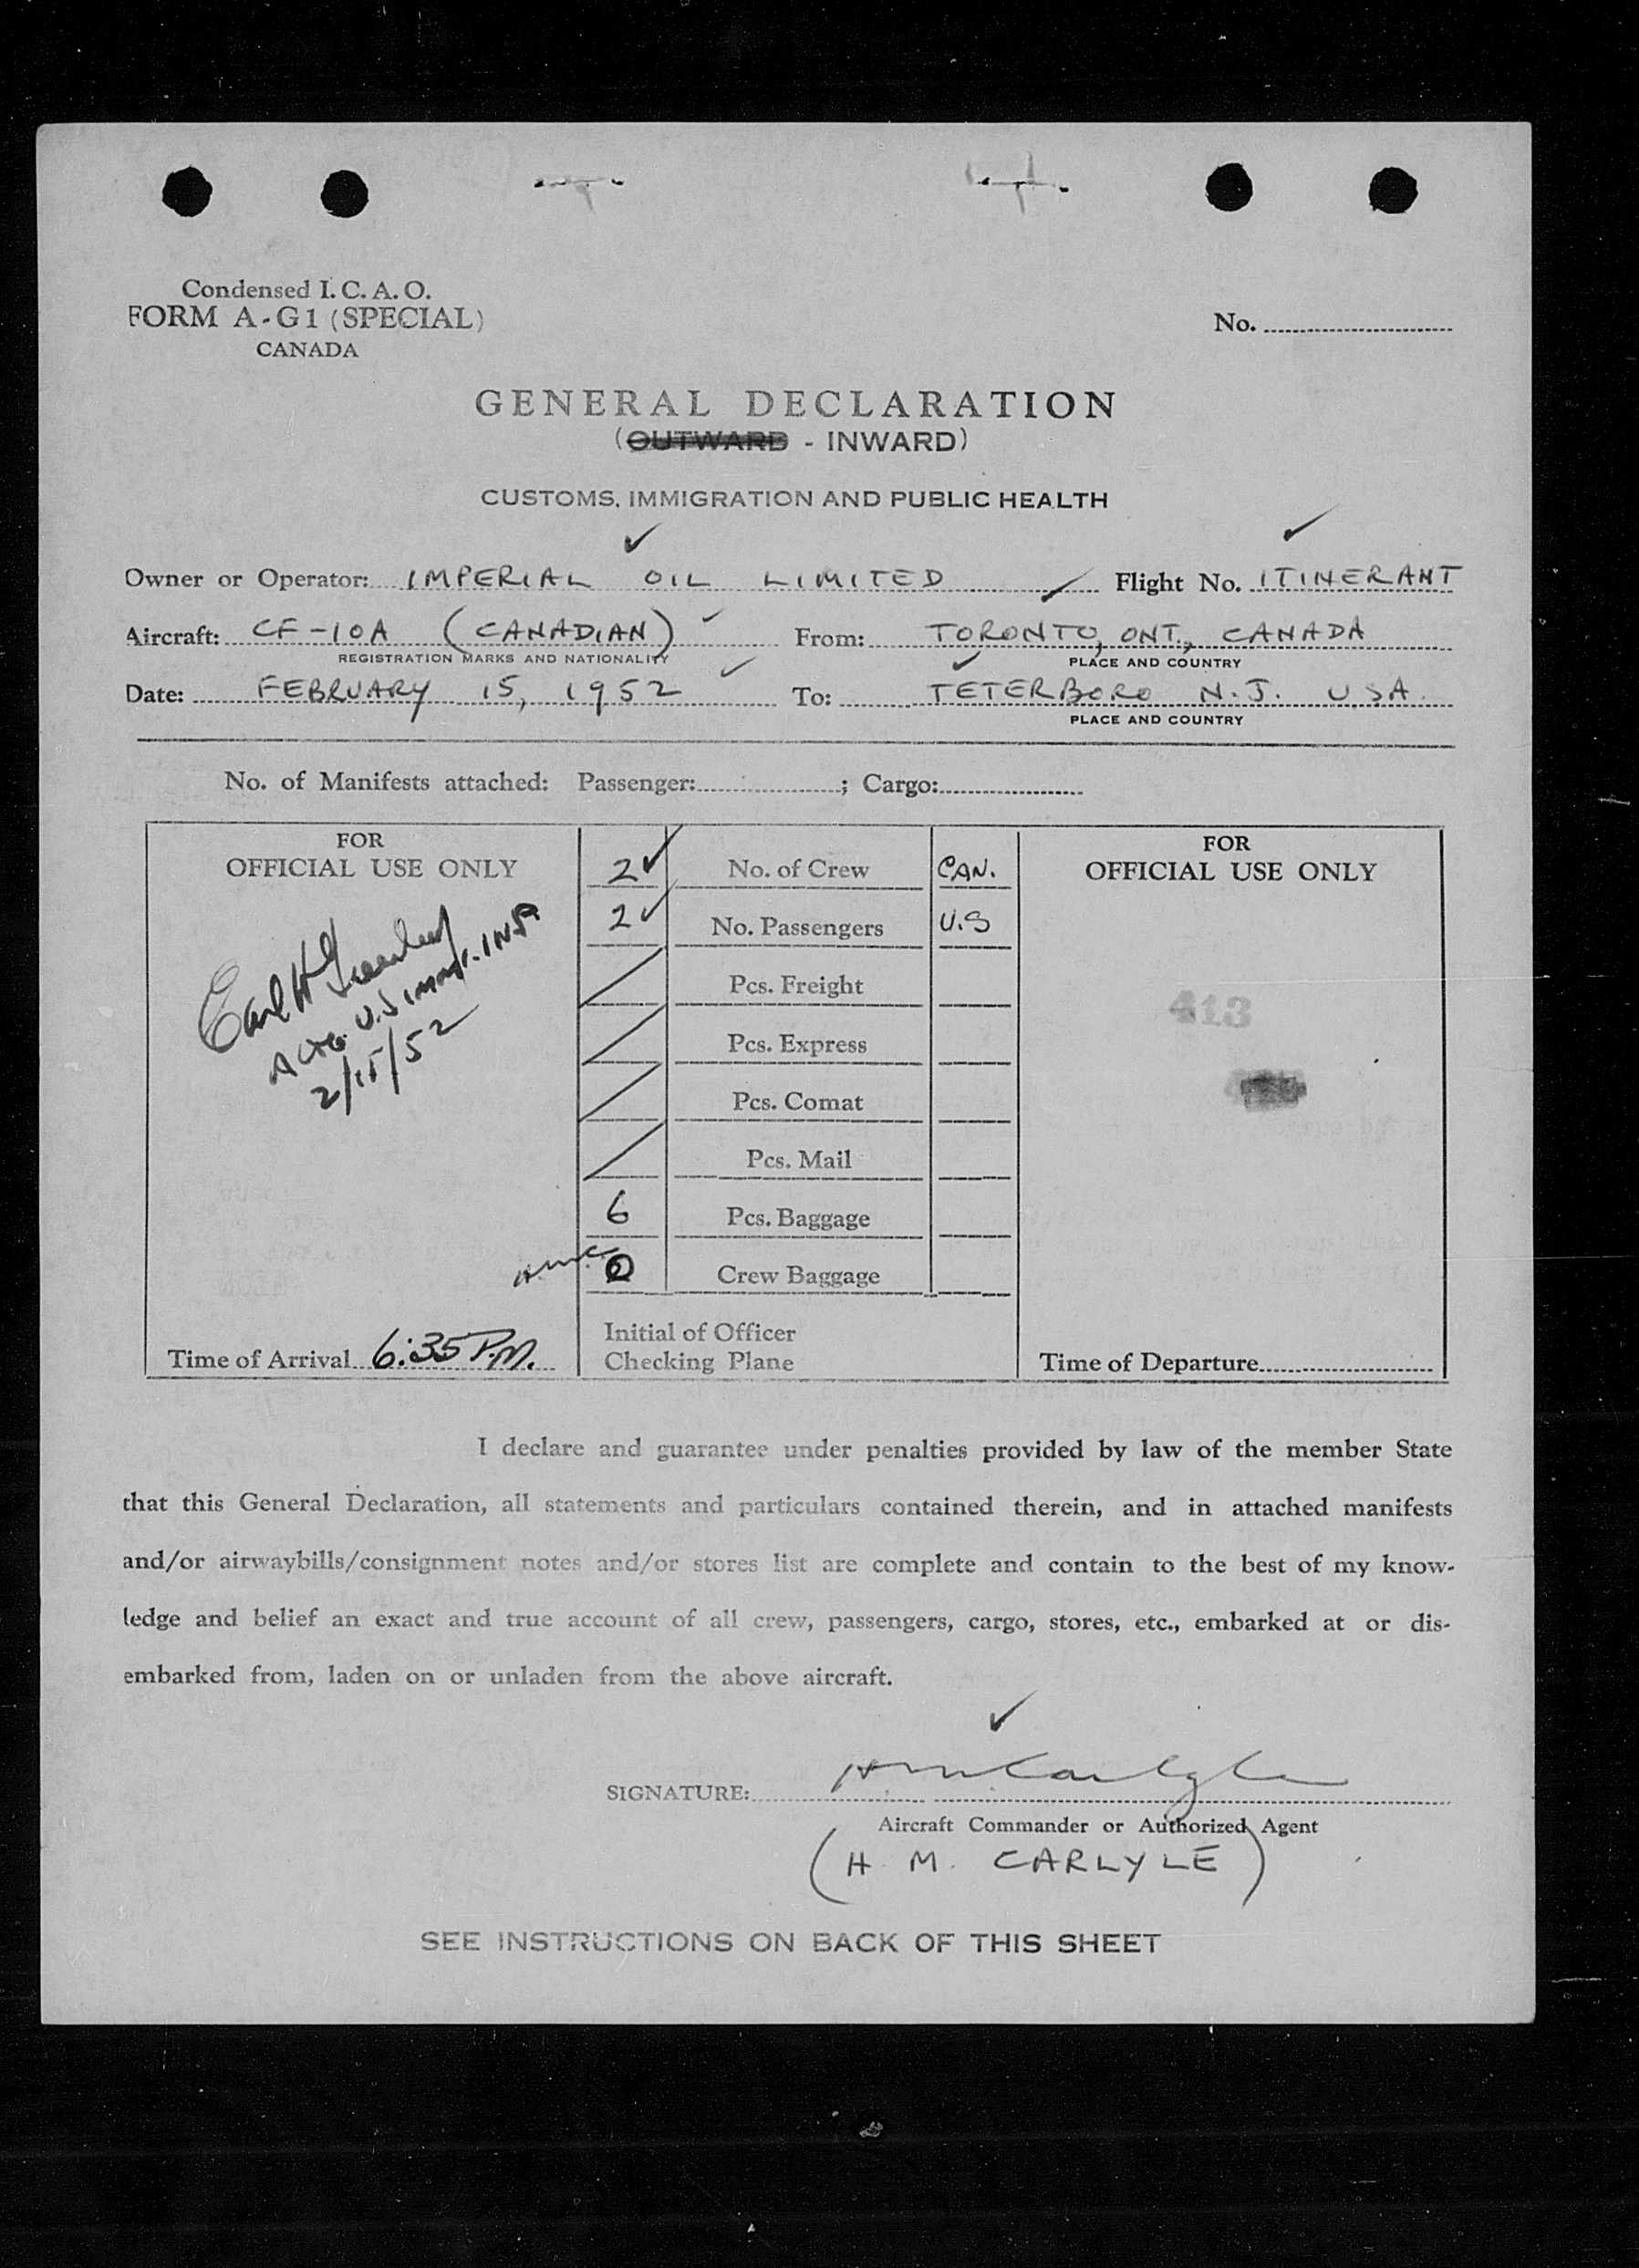 Condensed I. C. A. O.
FORM A-G1 (SPECIAL)
CANADA
No.
GENERAL DECLARATION
(OUTWARD - INWARD)
CUSTOMS, IMMIGRATION AND PUBLIC HEALTH
Owner or Operator: IMPERIAL OIL LIMITED Flight No. ITINERANT
Aircraft: CF-IOA (CANADIAN) From: TORONTO, ONT., CANADA
REGISTRATION MARKS AND NATIONALITY PLACE AND COUNTRY
Date: FEBRUARY 15, 1952 To: TETERBORO N.J. USA.
PLACE AND COUNTRY
No. of Manifests attached: Passenger: ; Cargo:
FOR
OFFICIAL USE ONLY
Earl H
ACTG. U.S IMMG. INSP
2/15/52
Time of Arrival 6:35 P.M.
2 No. of Crew CAN.
2 No. Passengers U.S
Pcs. Freight
Pcs. Express
Pcs. Comat
Pcs. Mail
6 Pcs. Baggage
Crew Baggage
Initial of Officer
Checking Plane
FOR
OFFICIAL USE ONLY
413
Time of Departure
I declare and guarantee under penalties provided by law of the member State
that this General Declaration, all statements and particulars contained therein, and in attached manifests
and/or airwaybills/consignment notes and/or stores list are complete and contain to the best of my know-
ledge and belief an exact and true account of all crew, passengers, cargo, stores, etc., embarked at or dis-
embarked from, laden on or unladen from the above aircraft.
SIGNATURE: H M Carlyle
Aircraft Commander or Authorized Agent
(H. M. CARLYLE)
SEE INSTRUCTIONS ON BACK OF THIS SHEET